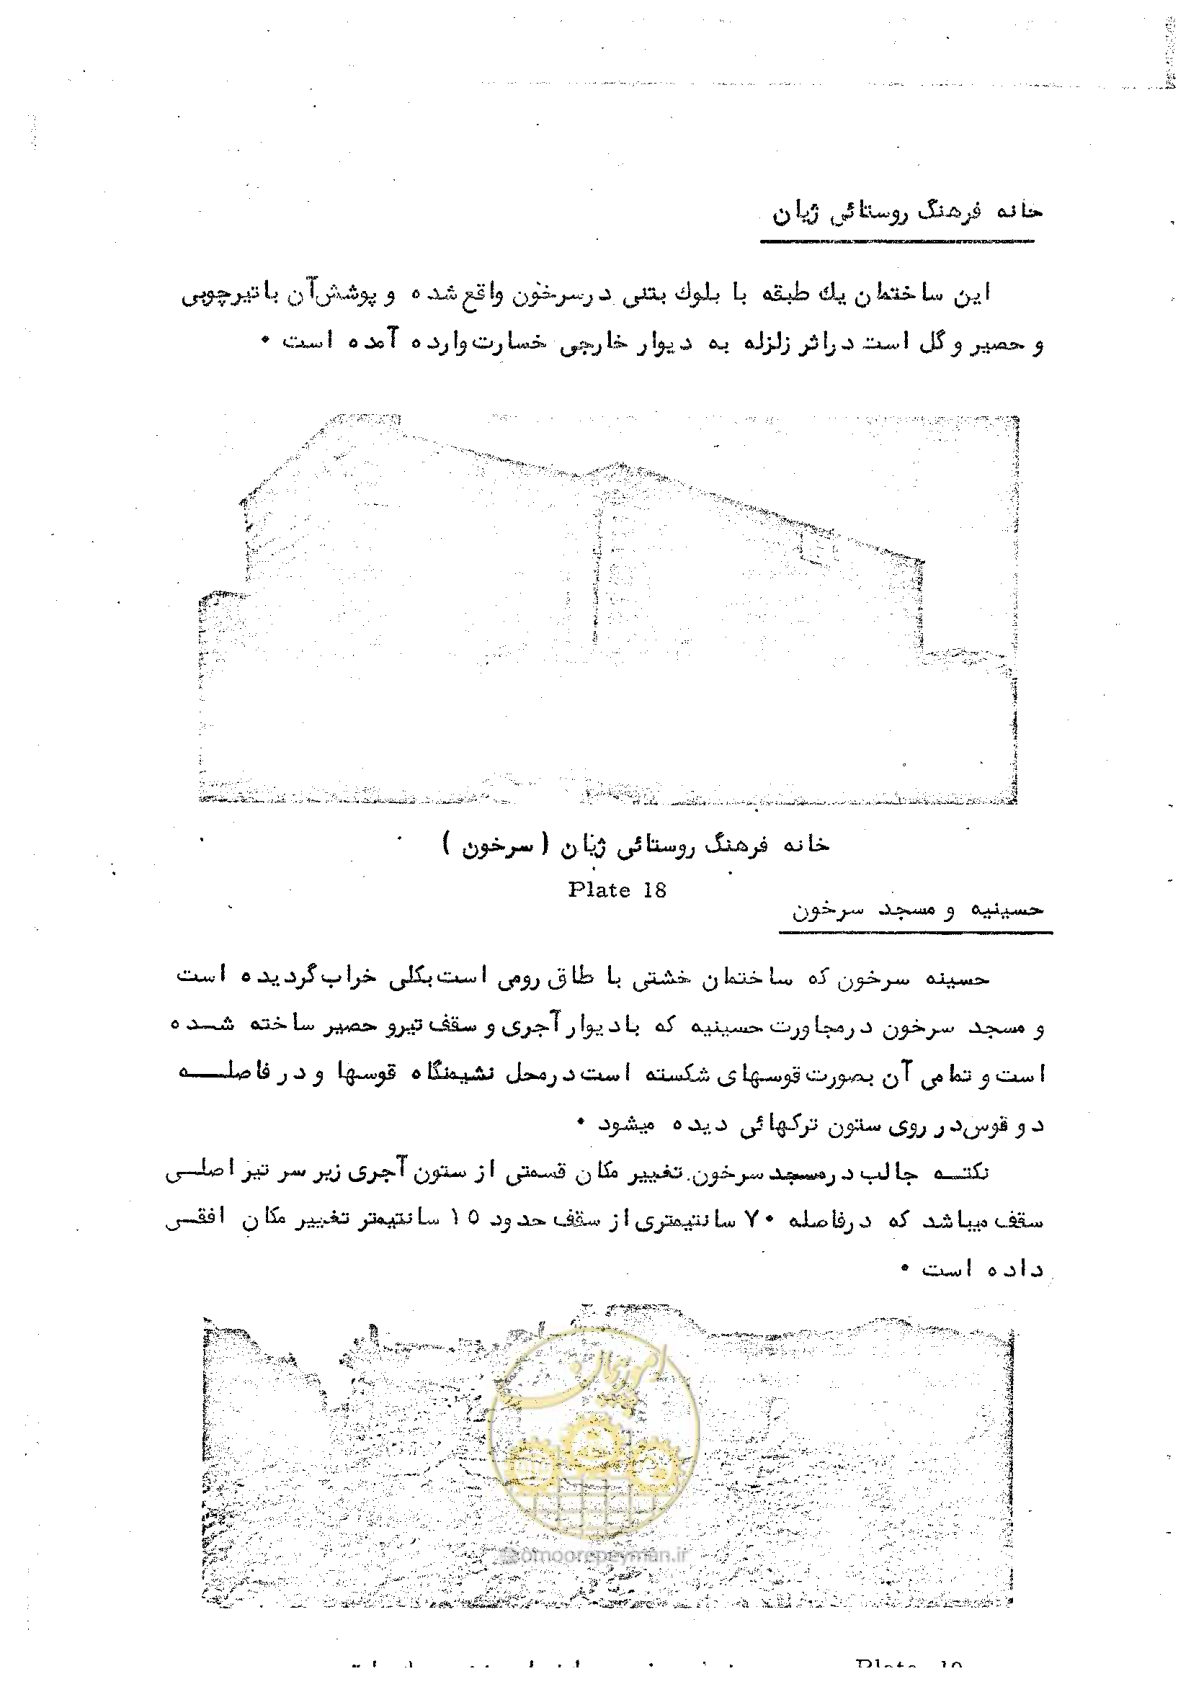 خانه فرهنگ روستائی ژیان
این ساختمان یك طبقه با بلوك بتنی درسرخون واقع شده و پوشش‌آن با تیرچوبی
و حصیر و گل است دراثر زلزله به دیوار خارجی خسارت‌وارده آمده است .
خانه فرهنگ روستائی ژیان ( سرخون )
Plate 18
حسینیه و مسجد سرخون
حسینه سرخون که ساختمان خشتی با طاق رومی است بکلی خراب گردیده است
و مسجد سرخون درمجاورت حسینیه که با دیوار آجری و سقف تیرو حصیر ساخته شده
است و تمامی آن بصورت قوسهای شکسته است درمحل نشیمنگاه قوسها و در فاصله
دو قوس در روی ستون ترکهائی دیده میشود .
نکته جالب درمسجد سرخون تغییر مکان قسمتی از ستون آجری زیر سر تیر اصلی
سقف میباشد که درفاصله ۷۰ سانتیمتری از سقف حدود ۱۵ سانتیمتر تغییر مکان افقی
داده است .
امور پیمان
@omoorepeyman.ir
Plate 19